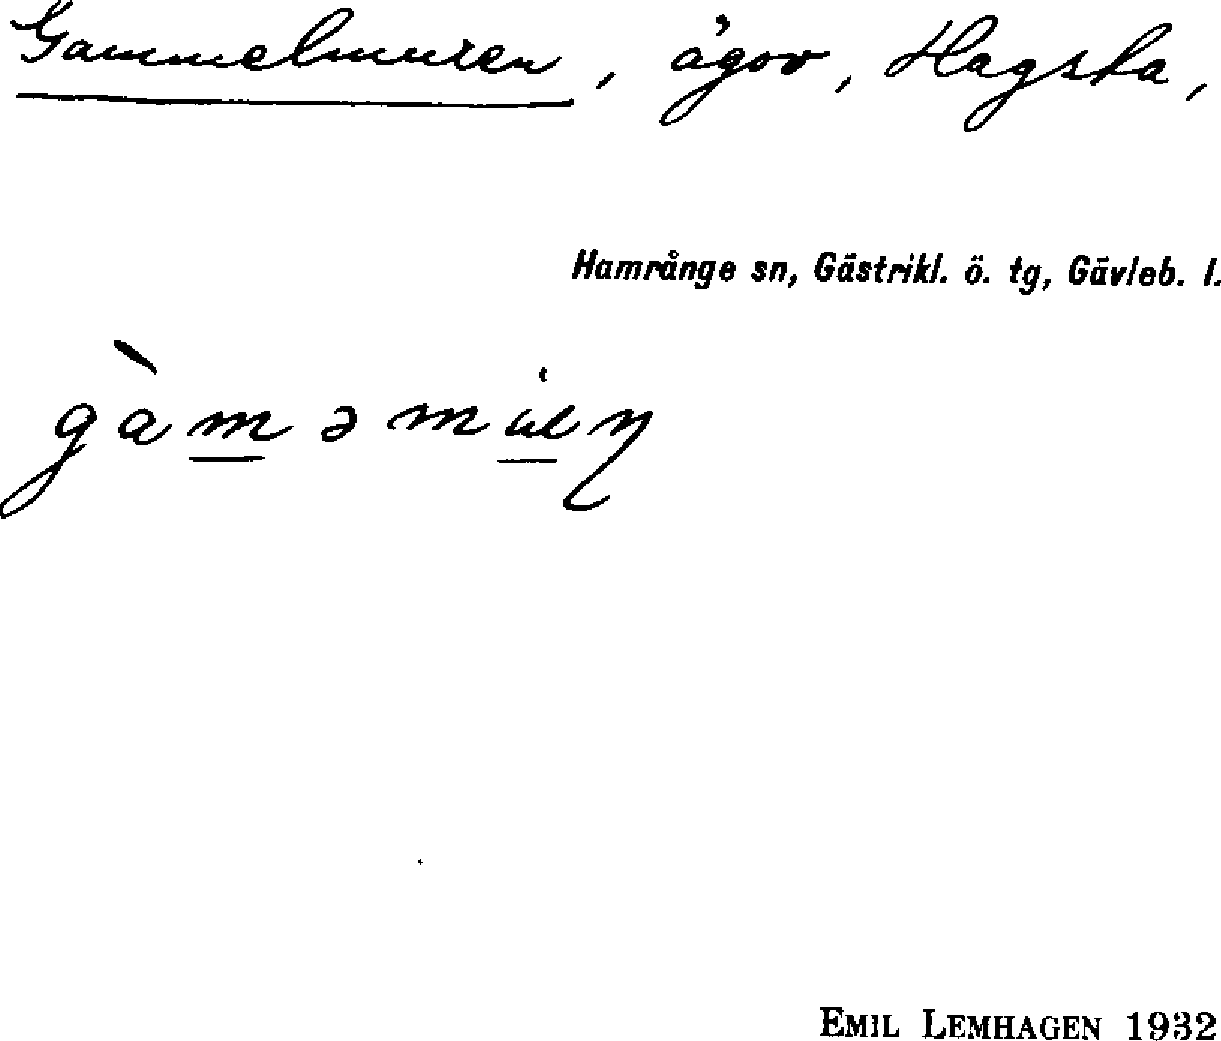 Gammelmuren, ågor, Hagsta,
Hamrånge sn, Gästrikl. ö. tg, Gävleb. l.
EMIL LEMHAGEN 1932